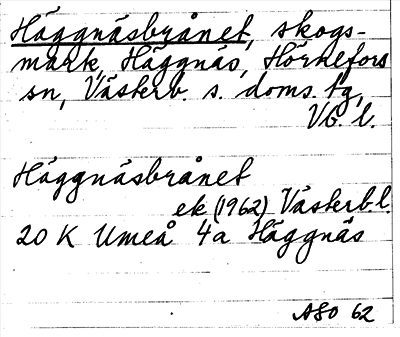 Häggnäsbrånet, skogs-
mark, Häggnäs, Hörnefors
sn, Västerb. s. doms. tg,
Vb. l.
Häggnäsbrånet
ek (1962) Västerb. l.
20 K Umeå 4a Häggnäs
ASO 62